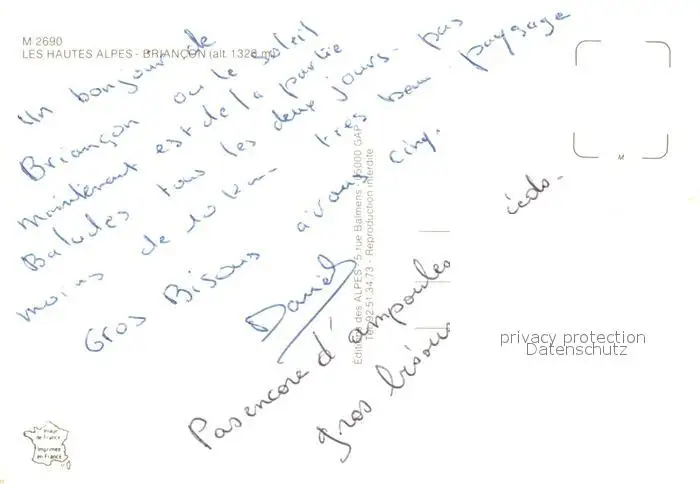 M 2690
LES HAUTES ALPES - BRIANÇON (alt. 1326 m)
Un bonjour de
Briançon ou le soleil
maintenant est de la partie
Balades tous les deux jours. pas
moins de 10 km très beau paysage
Gros Bisous à vous cinq.
Daniel
Pas encore d'ampoules
gros bisous
Editions des ALPES - 5, rue Balmens - 05000 GAP
Tél. 92.51.34.73 - Reproduction interdite
M
privacy protection
Datenschutz
Imprimée
en France